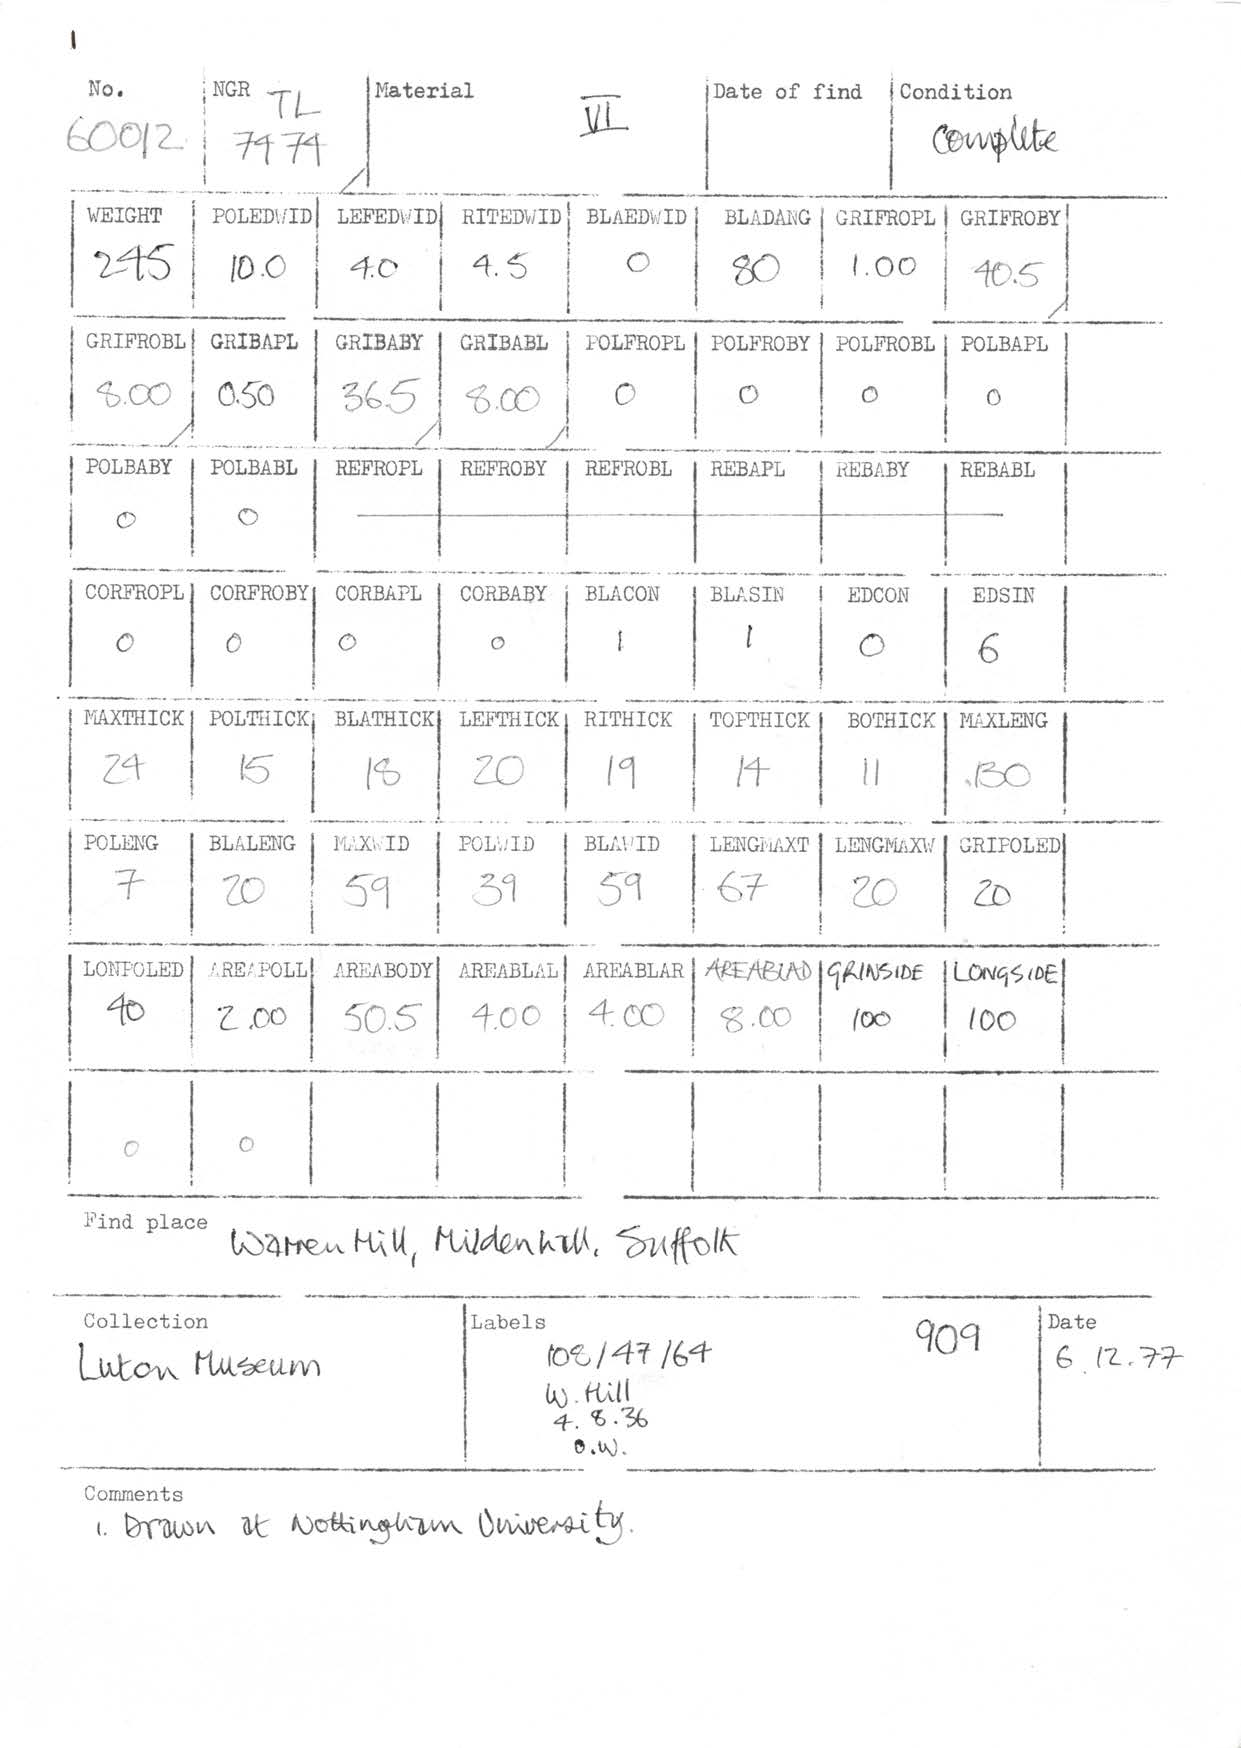 1
No. NGR TL Material VI Date of find Condition
60012 7474 complete
WEIGHT POLEDWID LEFEDWID RITEDWID BLAEDWID BLADANG GRIFROPL GRIFROBY
245 10.0 4.0 4.5 0 80 1.00 40.5
GRIFROBL GRIBAPL GRIBABY GRIBABL POLFROPL POLFROBY POLFROBL POLBAPL
8.00 0.50 36.5 8.00 0 0 0 0
POLBABY POLBABL REFROPL REFROBY REFROBL REBAPL REBABY REBABL
0 0
CORFROPL CORFROBY CORBAPL CORBABY BLACON BLASIN EDCON EDSIN
0 0 0 0 1 1 0 6
MAXTHICK POLTHICK BLATHICK LEFTHICK RITHICK TOPTHICK BOTHICK MAXLENG
24 15 18 20 19 14 11 130
POLENG BLALENG MAXWID POLWID BLAWID LENGMAXT LENGMAXW GRIPOLED
7 20 59 39 59 67 20 20
LONPOLED AREAPOLL AREABODY AREABLAL AREABLAR AREABLAD GRINSIDE LONGSIDE
40 2.00 50.5 4.00 4.00 8.00 100 100
0 0
Find place Warren Hill, Mildenhall, Suffolk
Collection Labels 909 Date
Luton Museum 108/47/64 6.12.77
W. Hill
4.8.36
O.W.
Comments
1. Drawn at Nottingham University.